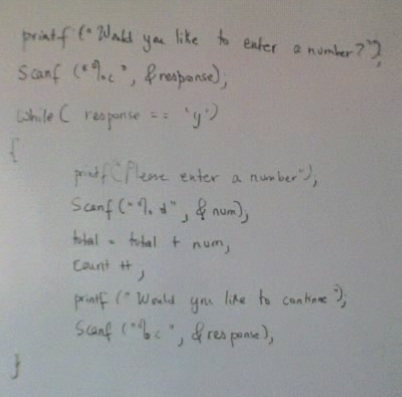 printf ("Would you like to enter a number?");
Scanf ("%c", &response);
while ( response == 'y')
{
printf("Please enter a number");
Scanf ("%d", & num);
total = total + num;
Count ++;
printf ("Would you like to continue");
Scanf ("%c", &response);
}